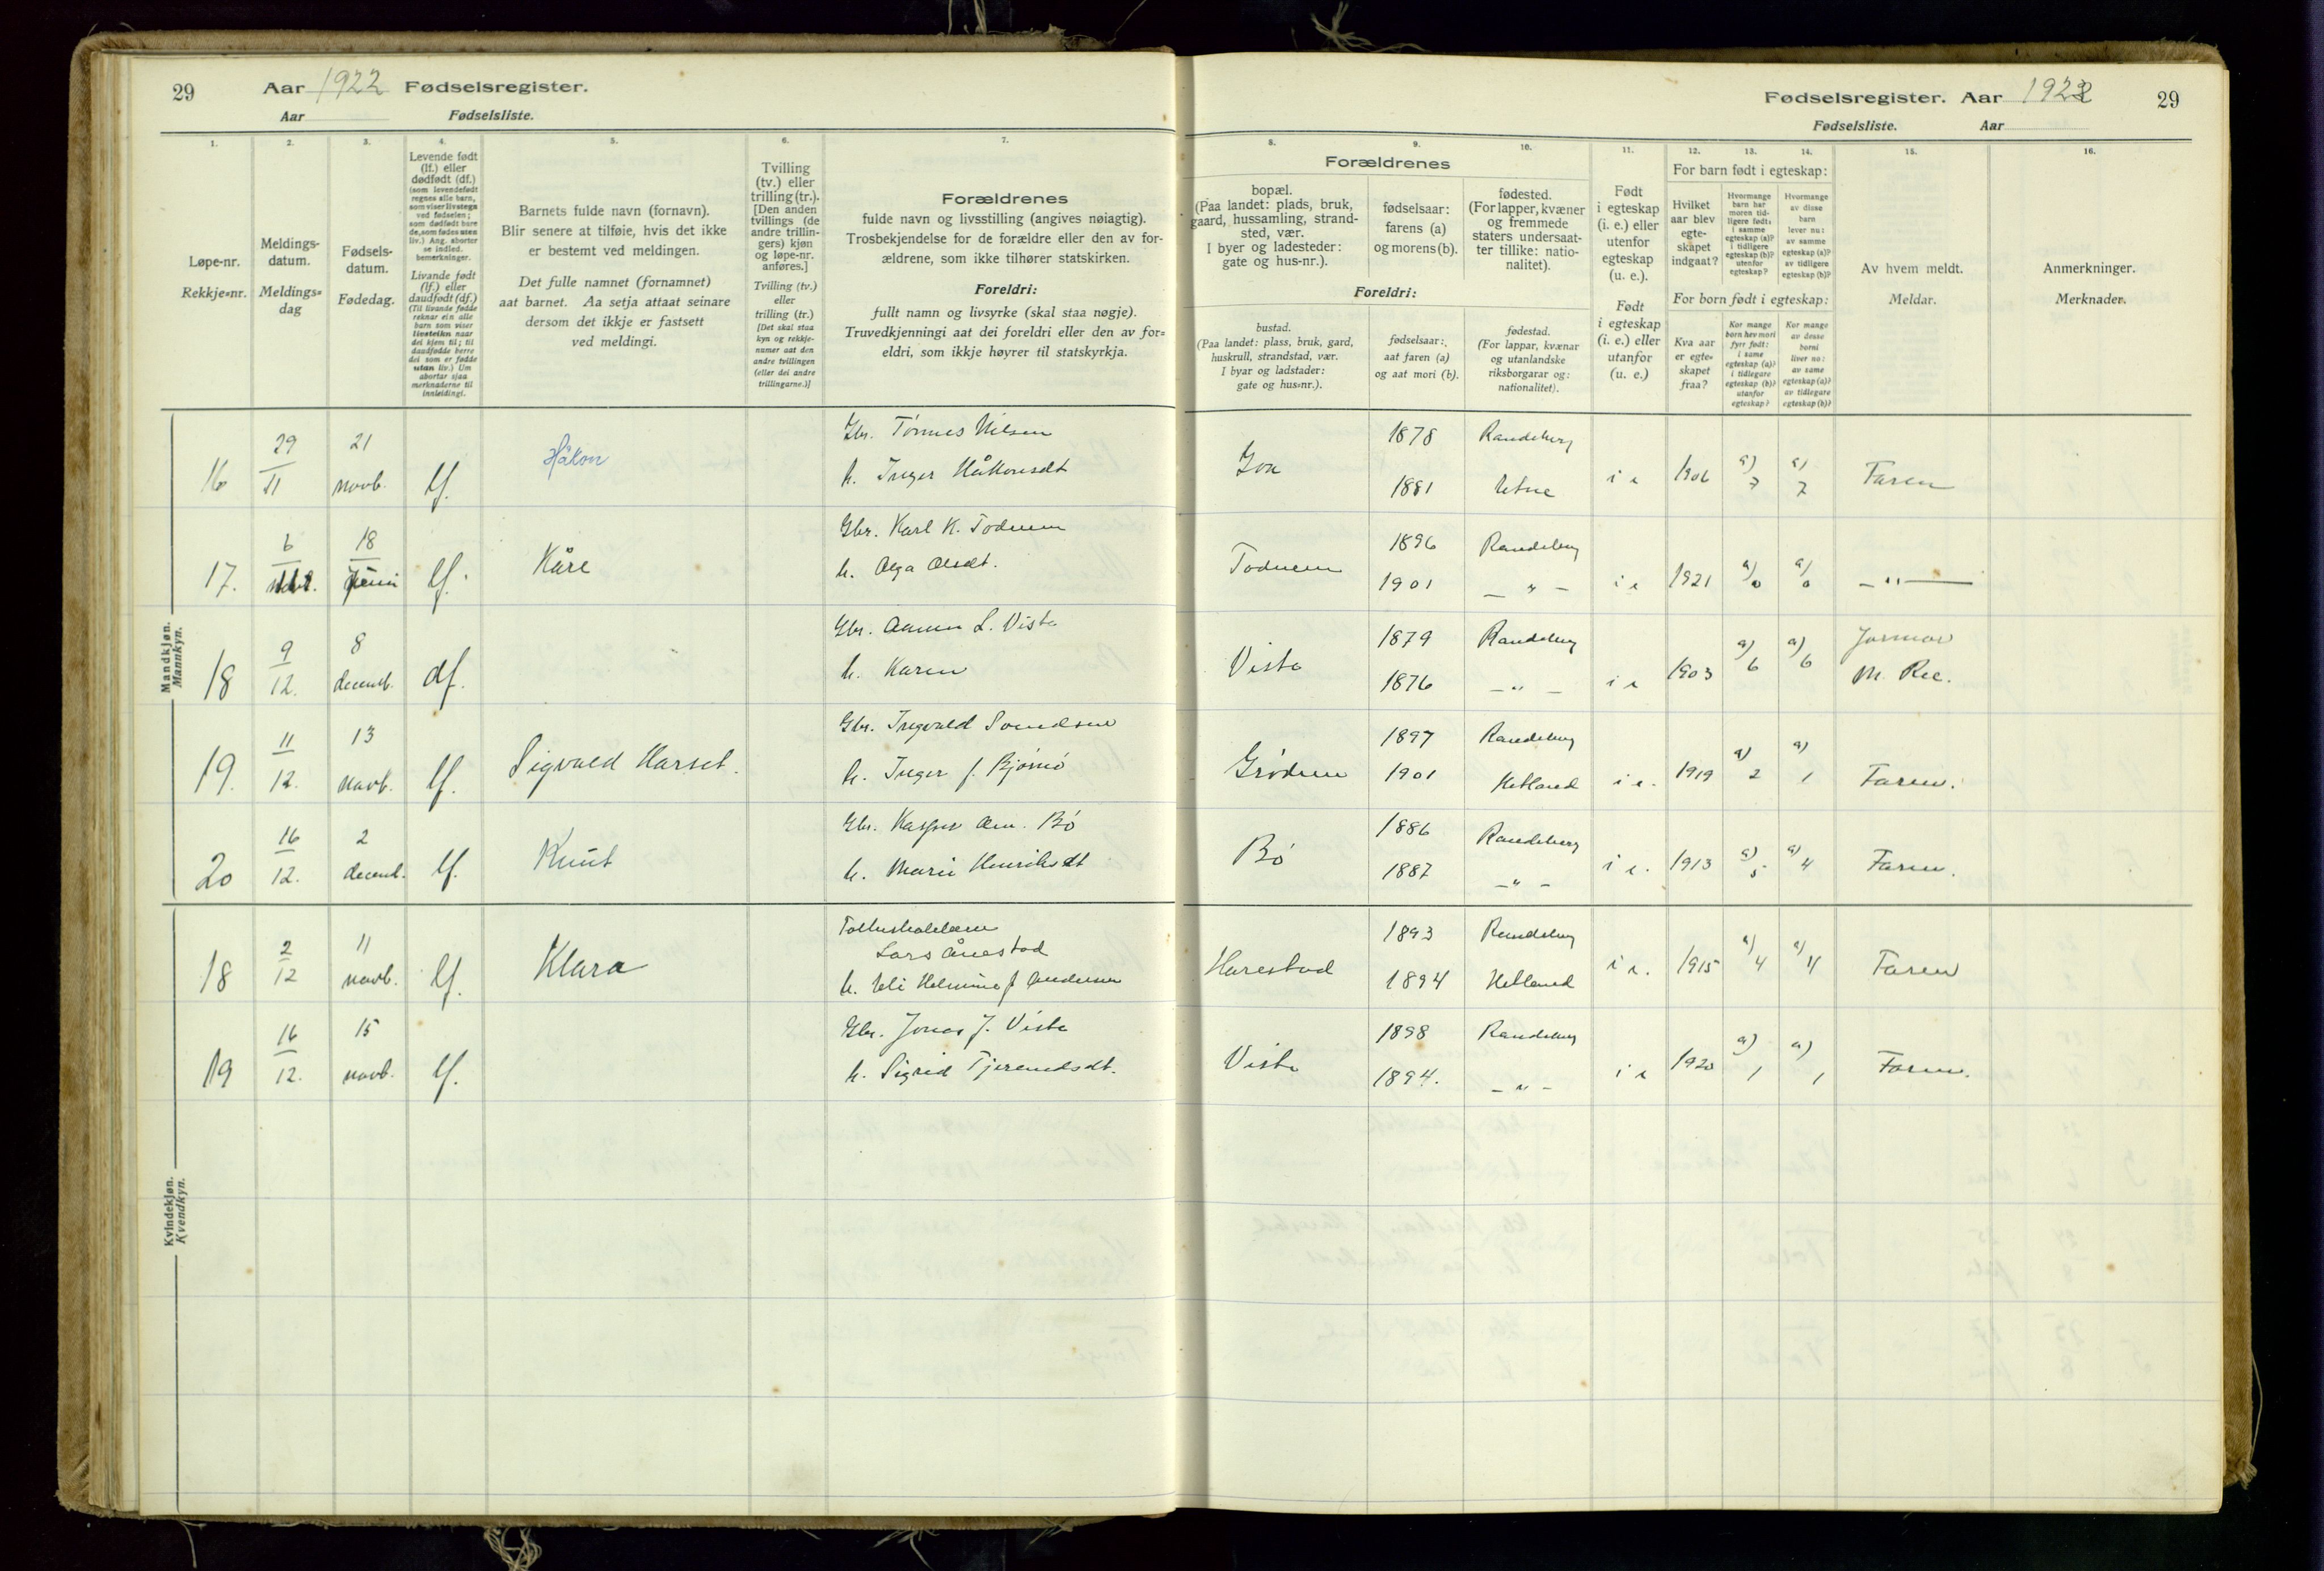 29
Aar 1922 Fødselsregister.
Aar Fødselsliste.
1.
2.
3.
4.
5.
6.
7.
Løpe-nr.
Rekkje=nr.
Meldings-
datum.
Meldings=
dag
Fødsels-
datum.
Fødedag.
Levende født
(lf.) eller
dødfødt (df.)
(som levendefødt
regnes alle barn,
som viser livstegn
ved fødselen;
som dødfødt bare
de, som fødes uten
liv.) Ang. aborter
se indled.
bemerkninger.
Livande født
(lf.) eller
daudfødt (df.)
(Til livande fødde
reknar ein alle
barn som viser
livsteikn naar
dei kjem til; til
daudfødde berre
dei som er fødde
utan liv.) Um
abortar sjaa
merknaderne til
innleidingi.
Barnets fulde navn (fornavn).
Blir senere at tilføie, hvis det ikke
er bestemt ved meldingen.
Det fulle namnet (fornamnet)
aat barnet. Aa setja attaat seinare
dersom det ikkje er fastsett
ved meldingi.
Tvilling
(tv.) eller
trilling (tr.).
[Den anden
tvillings (de
andre trillin-
gers) kjøn
og løpe-nr.
anføres.]
Tvilling (tv.)
eller
trilling (tr.)
[Det skal staa
kyn og rekkje-
numer aat den
andre tvillingen
(eller dei andre
trillingarne.)]
Forældrenes
fulde navn og livsstilling (angives nøiagtig).
Trosbekjendelse for de forældre eller den av for-
ældrene, som ikke tilhører statskirken.
Foreldri:
fullt namn og livsyrke (skal staa nøgje).
Truvedkjenningi aat dei foreldri eller den av for=
eldri, som ikkje høyrer til statskyrkja.
Mandkjøn.
Mannkyn.
16
29
11
21
novb.
lf.
Håkon
Gbr. Tønnes Nilsen
h. Inger Håkonsdt
17.
6
18
juni
lf.
Kåre
Gbr. Karl K. Todnem
h. Olga Olsdt.
18
9
12.
8
decemb.
df.
Gbr. L. Viste
h. Karen
19.
11
12.
13
novb.
lf.
Sigvald Harset.
Gbr. Ingvald
h. Inger f. Bjørnø
20
16
12.
2
decemb.
lf.
Knut
Gbr. Kasper Bø
h. Marie Henriksdt
Kvindekjøn.
Kvendkyn.
18
2
12
11
novb.
lf.
Klara
Lars Ånestad
h. f. Andersen
19
16
12.
15
novb.
lf.
Gbr. Jonas J. Viste
h. Sigrid Tjerandsdt.
Fødselsregister. Aar 1922
29
Fødselsliste. Aar
8.
9.
10.
11.
12.
13.
14.
15.
16.
Forældrenes
bopæl.
(Paa landet: plads, bruk,
gaard, hussamling, strand-
sted, vær.
I byer og ladesteder:
gate og hus-nr.).
fødselsaar:
farens (a)
og morens (b).
fødested.
(For lapper, kvæner
og fremmede
staters undersaat-
ter tillike: natio-
nalitet).
Foreldri:
bustad.
(Paa landet: plass, bruk, gard,
huskrull, strandstad, vær.
I byar og ladstader:
gate og hus=nr.).
fødselsaar:
aat faren (a)
og aat mori (b).
fødestad.
(For lappar, kvænar
og utanlandske
riksborgarar og:
nationalitet).
Født
i egteskap
(i. e.) eller
utenfor
egteskap
(u. e.).
Født
i egteskap
(i. e.) eller
utanfor
(u. e.)
For barn født i egteskap:
Hvilket
aar blev
egte-
skapet
indgaat?
Hvormange
barn har
moren tid-
ligere født:
i samme
egteskap (a)?
i tidligere
egteskap (b)?
utenfor
egteskap?
Hvormange
av disse
barn
lever nu:
av samme
egteskap (a)?
av tidligere
egteskap (b)?
For born født i egteskap:
Kva aar
er egte=
skapet
fraa?
Kor mange
born hev mori
fyrr født:
i same
egteskap (a)?
i tidlegare
egteskap (b)?
utanfor
egteskap?
Kor mange
av desse
borni
liver no:
av same
egteskap (a)?
av tidlegare
egteskap (b)?
Av hvem meldt.
Meldar.
Anmerkninger.
Merknader.
Goa
1878
1881
Randeberg
Etne
i e
1906
a)
7
a)
7
Faren
Todnem
1896
1901
Randeberg
— " —
i e
1921
a)
0
a)
0
— " —
Viste
1879
1876
Randeberg
— " —
i e
1903
a)
6
a)
6
Jormor
M. Ree.
Grødem
1897
1901
Randeberg
Hetland
i e.
1919
a)
2
a)
1
Faren.
Bø
1886
1887
Randeberg
— " —
i e.
1913
a)
5
a)
4
Faren.
Harestad
1893
1894
Randeberg
Hetland
i e.
1915
a)
4
a)
4
Faren
Viste
1898
1894.
Randeberg
— " —
i e
1920
a)
1
a)
1
Faren.